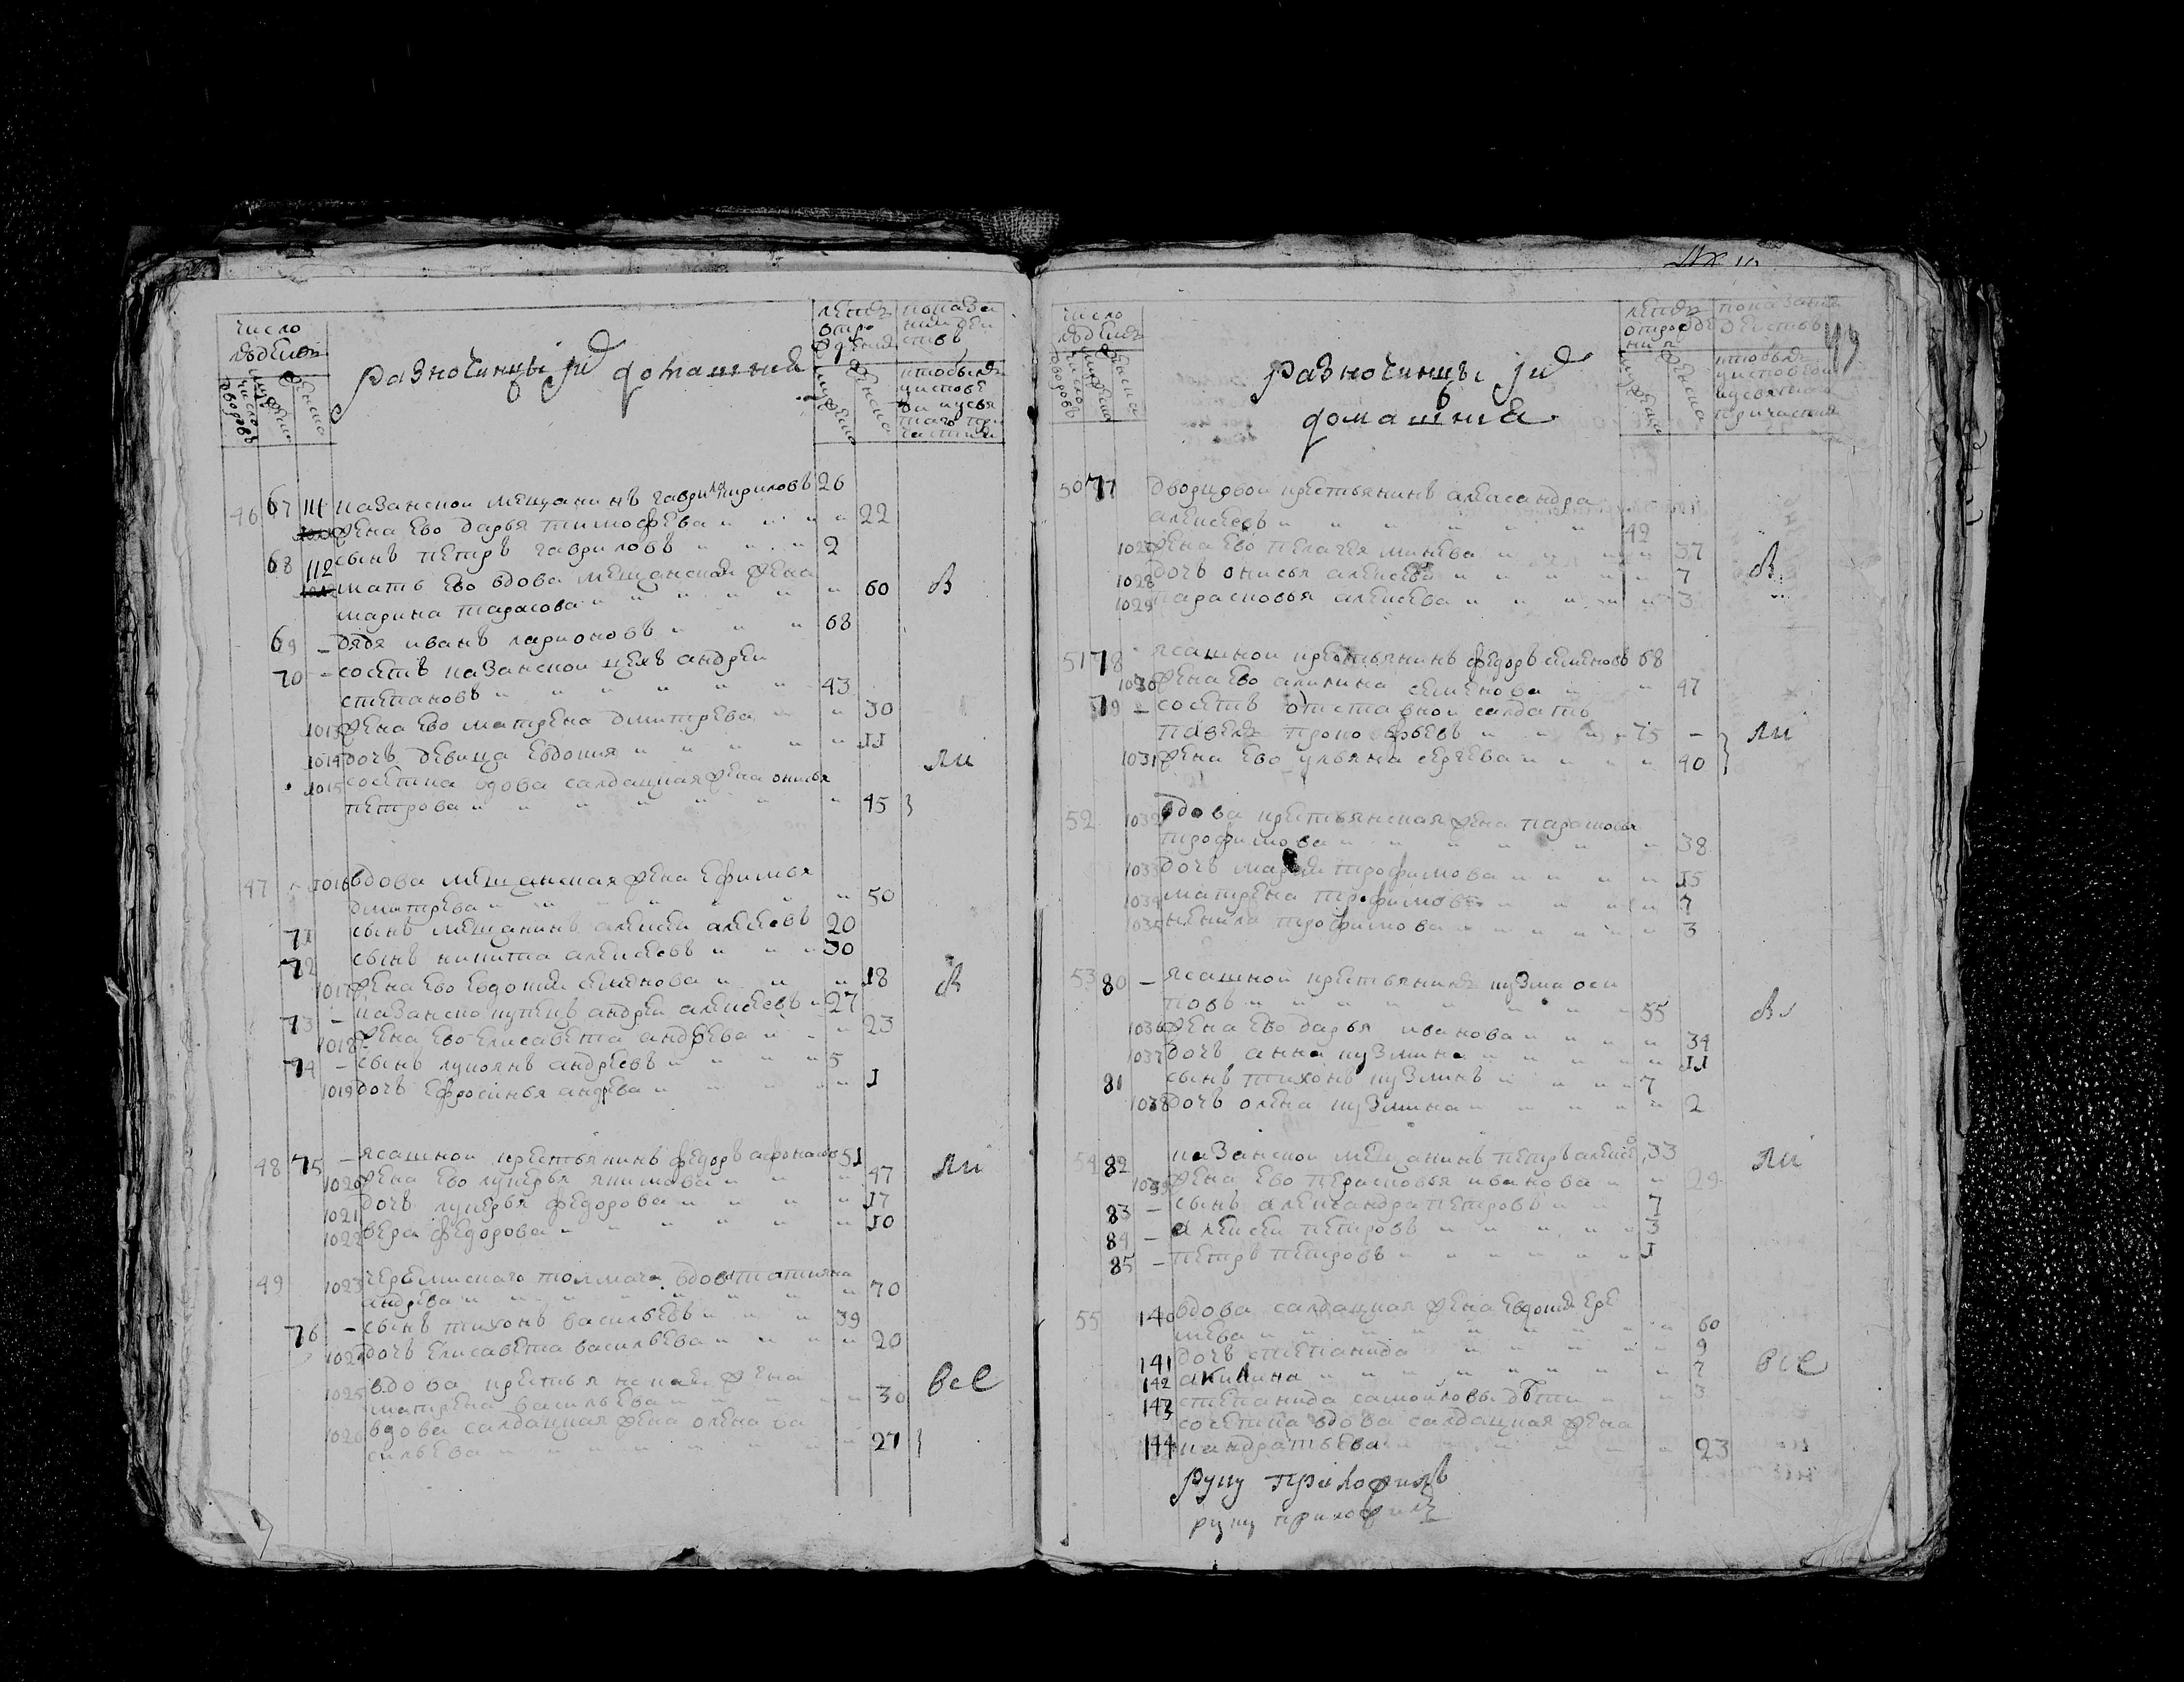 число людей
число дворовъ
мужеска
женска
разночинцы и их домашния
лета от рождения
мужеска
женска
показание действ
кто былъ у исповеди и у святаго причастия
46 67 111 казанской мещанинъ гаврила кириловъ 26
жена ево дарья тимофева 22
68 сынъ петръ гавриловъ 2
112 мать ево вдова мещанская жена
марина тарасова 60
69 - дядя иванъ ларионовъ 68
70 - соседъ казанской цехъ андреи
степановъ 43
1013 жена ево матрена дмитрева 30
1014 дочь девица евдокия 11
1015 соседка вдова салдацкая жена
петрова 45
47 1016 вдова мещанская жена ефимья
дмитрева 50
71 сынъ мещанинъ алексеи алексеевъ 20
72 сынъ никита алексеевъ 30
1017 жена ево евдокия 18
73 - казанско купецъ андреи алексеевъ 27
1018 жена ево елисавета андрева 23
74 - сынъ лукоянъ андреевъ 5
1019 дочь ефросинья андрева 1
48 75 - ясашной крестьянинъ федоръ 51
1020 жена ево лукерья якимова 47
1021 дочь лукерья федорова 17
1022 вера федорова 10
49 1023 толмача вдова татияна
андрева 70
76 - сынъ тихонъ васильевъ 39
1024 дочь елисавета васильева 20
1025 вдова крестьянская жена
матрена васильева 30 все
1026 вдова салдацкая жена олена ва
сильева 27
49
число людей
число дворовъ
мужеска
женска
разночинцы и их
домашния
лета от рождения
мужеска
женска
показание действъ
кто былъ у исповеди и у святаго причастия
50 77 дворцовои крестьянинъ александра
алексеевъ 42
1027 жена ево пелагея минева 37
1028 дочь онисья алексева 7
1029 парасковья алексева 3
51 78 ясашной крестьянинъ федоръ семеновъ 68
1030 жена ево акилина семенова 47
79 - соседъ отставной салдатъ
павелъ прокофьевъ 75 -
1031 жена ево ульяна 40
52 1032 вдова крестьянская жена парасковья
трофимова 38
1033 дочь марья трофимова 15
1034 матрена трофимова 7
1035 ненила трофимова 3
53 80 - ясашной крестьянинъ кузма оси
повъ 55
1036 жена ево дарья иванова 34
1037 дочь анна кузмина 11
81 сынъ тихонъ кузминъ 7
1038 дочь олена кузмина 2
54 82 казанской мещанинъ петръ алексе 33
1039 жена ево парасковья иванова 29
83 - сынъ александра петровъ 7
84 - алексеи петровъ 3
85 - петръ петровъ 1
55 140 вдова салдацкая жена евдокия ере
мева 60
141 дочь степанида 9
142 акилина 7 все
143 степанида самоиловы дѣти 3
соседка вдова салдацкая жена
144 кандратьева 23
руку приложилъ
руку приложилъ